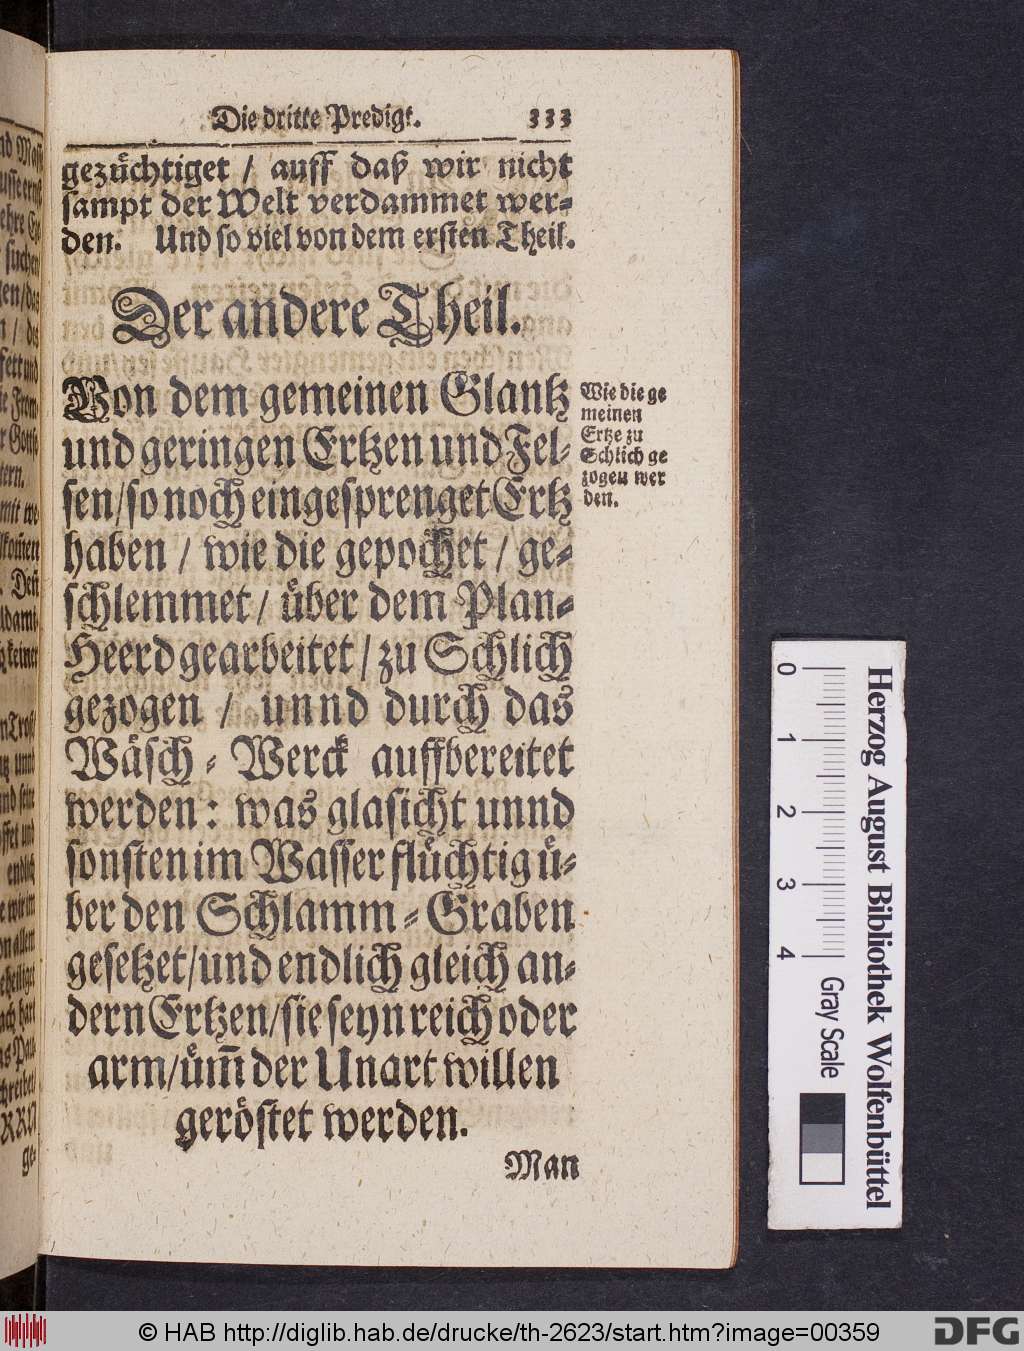 Die dritte Predigt. 333
gezuͤchtiget / auff daß wir nicht
sampt der Welt verdammet wer⸗
den. Und so viel von dem ersten Theil.
Der andere Theil.
Von dem gemeinen Glantz
und geringen Ertzen und Fel⸗
sen/so noch eingesprenget Ertz
haben / wie die gepochet / ge⸗
schlemmet / uͤber dem Plan⸗
Heerd gearbeitet / zu Schlich
gezogen / unnd durch das
Waͤsch ⸗ Werck auffbereitet
werden: was glasicht unnd
sonsten im Wasser fluͤchtig uͤ⸗
ber den Schlamm ⸗ Graben
gesetzet/und endlich gleich an⸗
dern Ertzen/sie seyn reich oder
arm/uͤm̃ der Unart willen
geroͤstet werden.
Man
Wie die ge
meinen
Ertze zu
Schlich ge
zogen wer
den.
0 1 2 3 4
Gray Scale
Herzog August Bibliothek Wolfenbüttel
© HAB http://diglib.hab.de/drucke/th-2623/start.htm?image=00359
DFG